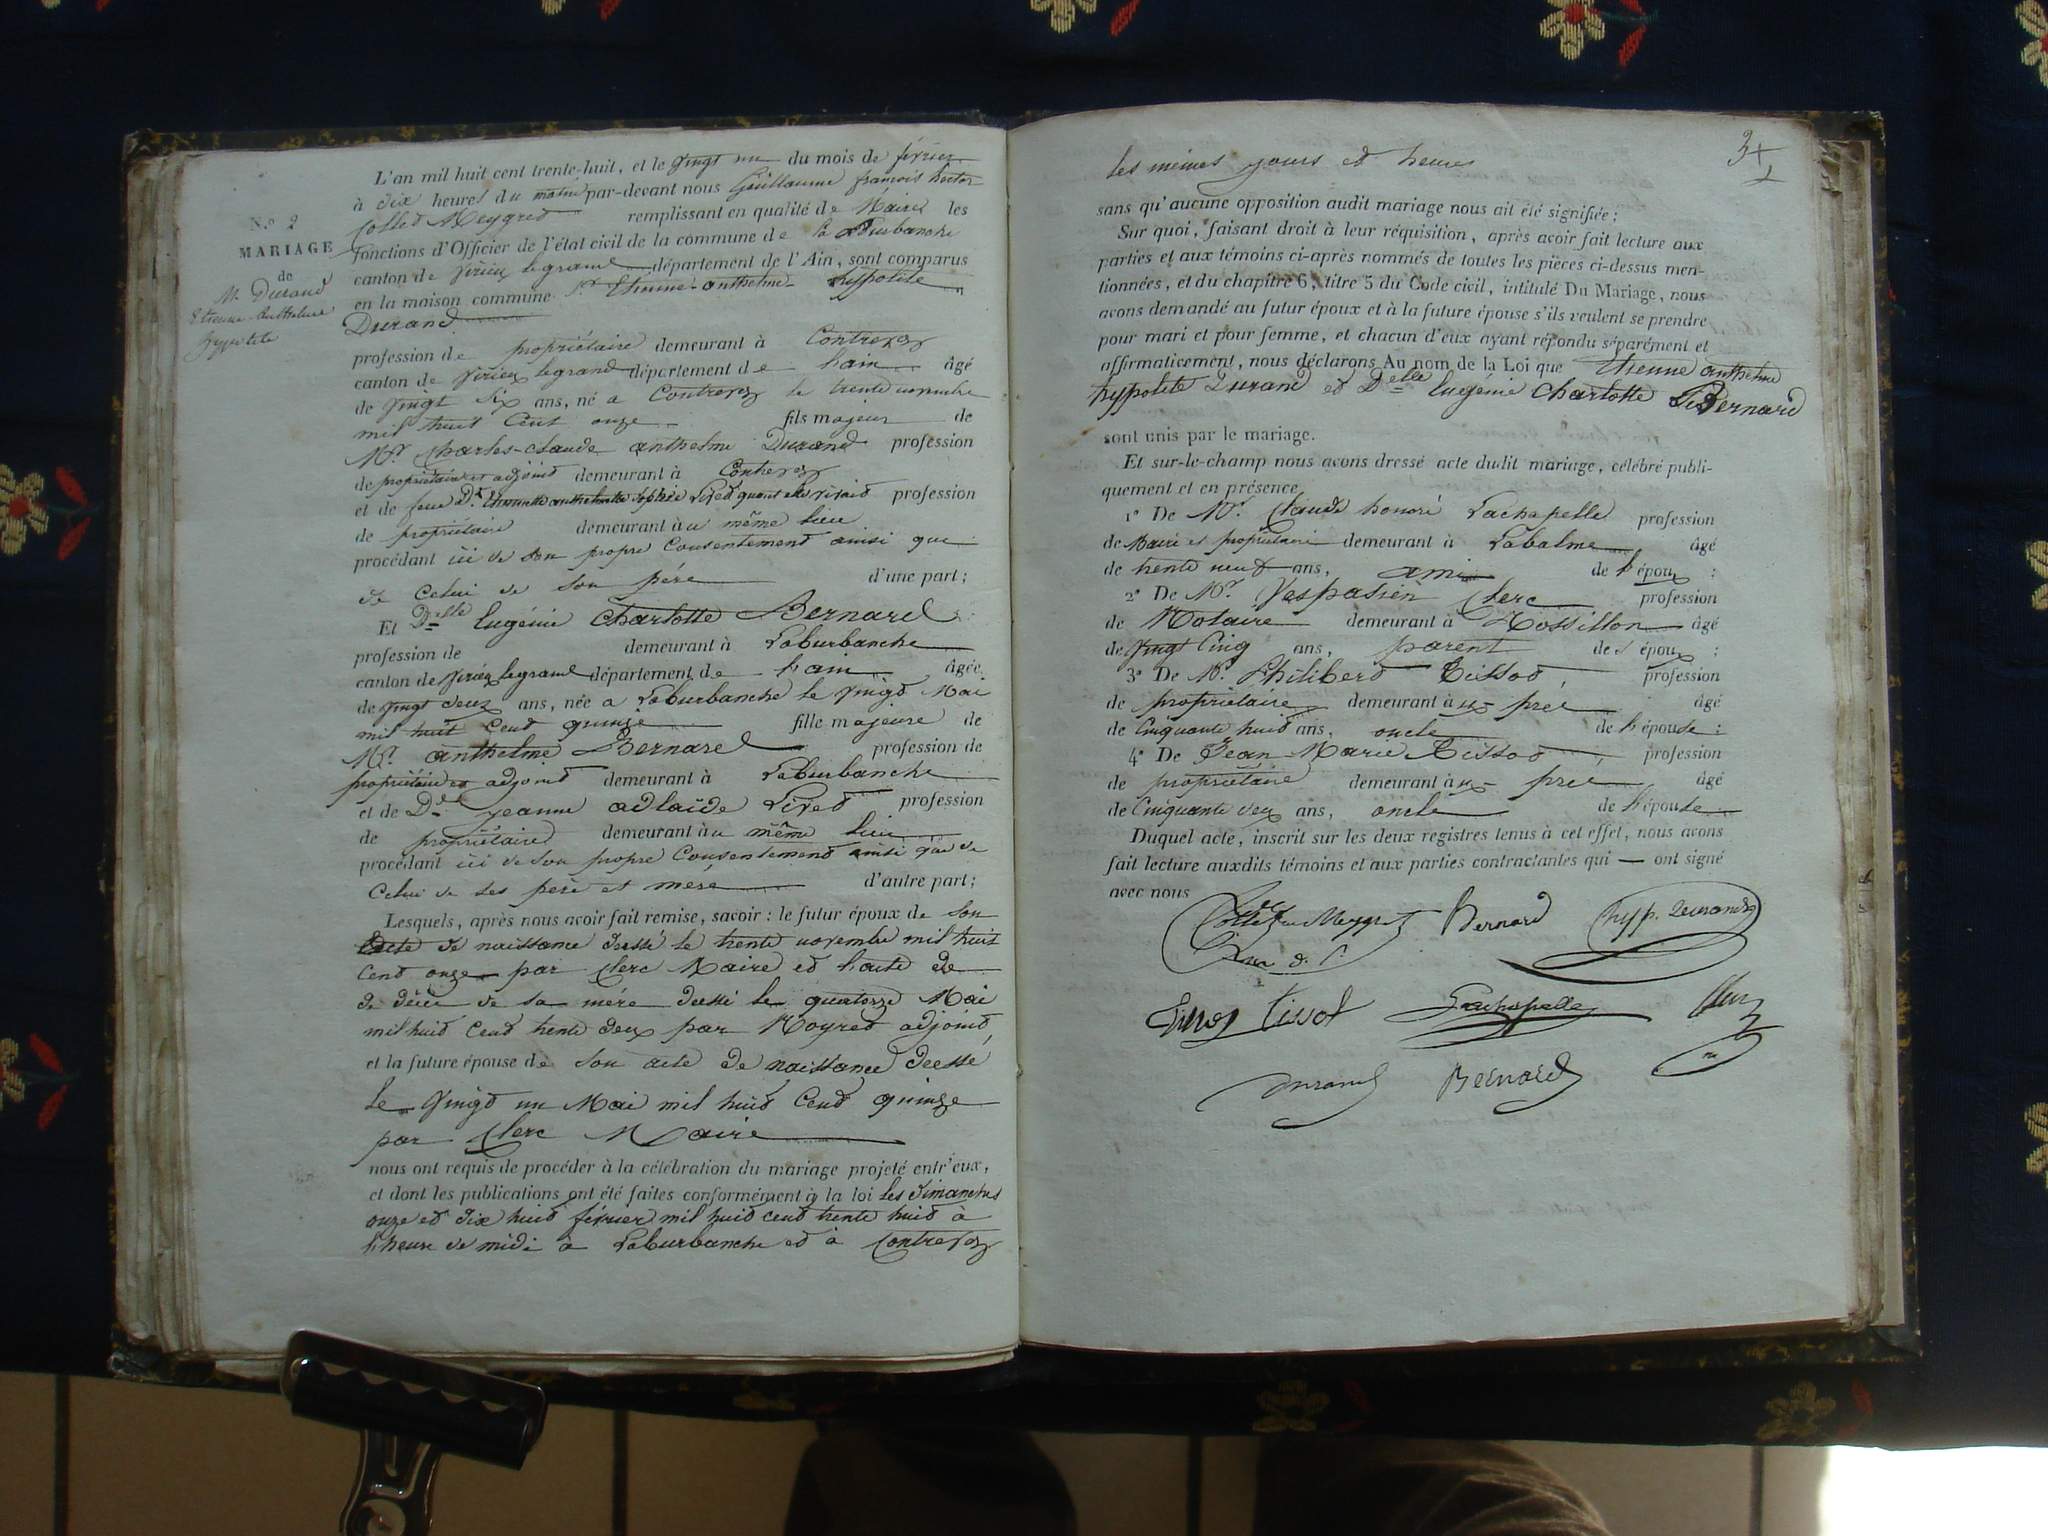 N.º 2
MARIAGE
de
M. Durand
Etienne Anthelme
hypolite
L'an mil huit cent trente-huit, et le vingt un du mois de février
à dix heures du matin par-devant nous Guillaume françois hector
Collet Meygret remplissant en qualité de Maire les
fonctions d'Officier de l'état civil de la commune de la Burbanche
canton de Virieu legrand département de l'Ain, sont comparus
en la maison commune Sr. Etienne anthelme hyppolite
Durand
profession de propriétaire demeurant à Contrevoz
canton de Virieu legrand département de lain âgé
de vingt six ans, né a Contrevoz le trente novembre
mil huit Cent onze fils majeur de
Mr. Charles-Claude anthelme Durand profession
de propriétaire et adjoint demeurant à Contrevoz
et de feue De. anthelmette Sophie Livet quant elle vivait profession
de propriétaire demeurant àu même lieu
procédant ici de son propre Consentement ainsi que
de Celui de son père d'une part;
Et Delle Eugénie Charlotte Bernard
profession de demeurant à Laburbanche
canton de Virieu legrand département de lain âgée
de vingt deux ans, née a Laburbanche le vingt Mai
mil huit Cent quinze fille majeure de
Mr. anthelme Bernard profession de
propriétaire et adjoint demeurant à Laburbanche
et de De jeanne adlaïde Livet profession
de propriétaire demeurant àu même lieu
procédant ici de son propre Consentement ainsi que de
Celui de ses père et mère d'autre part;
Lesquels, après nous avoir fait remise, savoir: le futur époux de son
acte de naissance dressé le trente novembre mil huit
Cent onze par Clerc Maire et l'acte de
de décès de sa mère dressé le quatorze Mai
mil huit Cent trente deux par Moyret adjoint
et la future épouse de son acte de naissance dressé
le vingt un Mai mil huit Cent quinze
par Clerc Maire
nous ont requis de procéder à la célébration du mariage projeté entr'eux,
et dont les publications ont été faites conformément à la loi les dimanches
onze et dix huit février mil huit cent trente huit à
l'heure de midi à Laburbanche et à Contrevoz
3
les mêmes jours et heures
sans qu'aucune opposition audit mariage nous ait été signifiée;
Sur quoi, faisant droit à leur réquisition, après avoir fait lecture aux
parties et aux témoins ci-après nommés de toutes les pièces ci-dessus men-
tionnées, et du chapitre 6, titre 5 du Code civil, intitulé Du Mariage, nous
avons demandé au futur époux et à la future épouse s'ils veulent se prendre
pour mari et pour femme, et chacun d'eux ayant répondu séparément et
affirmativement, nous déclarons Au nom de la Loi que Etienne anthelme
hypolite Durand et Delle Eugénie Charlotte Bernard
sont unis par le mariage.
Et sur-le-champ nous avons dressé acte dudit mariage, célébré publi-
quement et en présence
1º De Mr. Claude honoré Lachapelle profession
de Maire et propriétaire demeurant à Labalme âgé
de trente neuf ans, ami de l'époux ;
2º De Mr. Vespasien Clerc profession
de Notaire demeurant à Rossillon âgé
de vingt Cinq ans, parent de l'époux ;
3º De Mr. Philibert Tissot, profession
de propriétaire demeurant à ux preé âgé
de Cinquante huit ans, oncle de l'épouse ;
4º De Jean Marie Tissot, profession
de propriétaire demeurant à ux preé âgé
de Cinquante deux ans, oncle de l'épouse
Duquel acte, inscrit sur les deux registres tenus à cet effet, nous avons
fait lecture auxdits témoins et aux parties contractantes qui — ont signé
avec nous
Collet Meygret Bernard hyp. Durand
Tissot Lachapelle Clerc
Durand Bernard